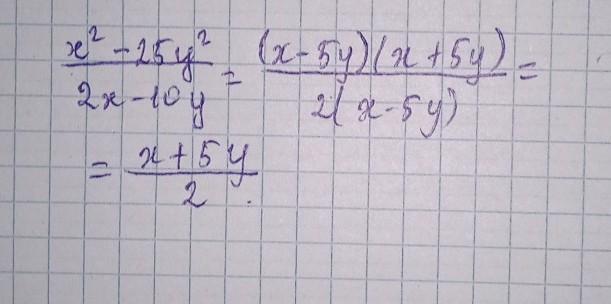 x² - 25y² / 2x - 10y = (x - 5y)(x + 5y) / 2(x - 5y) =
= x + 5y / 2.